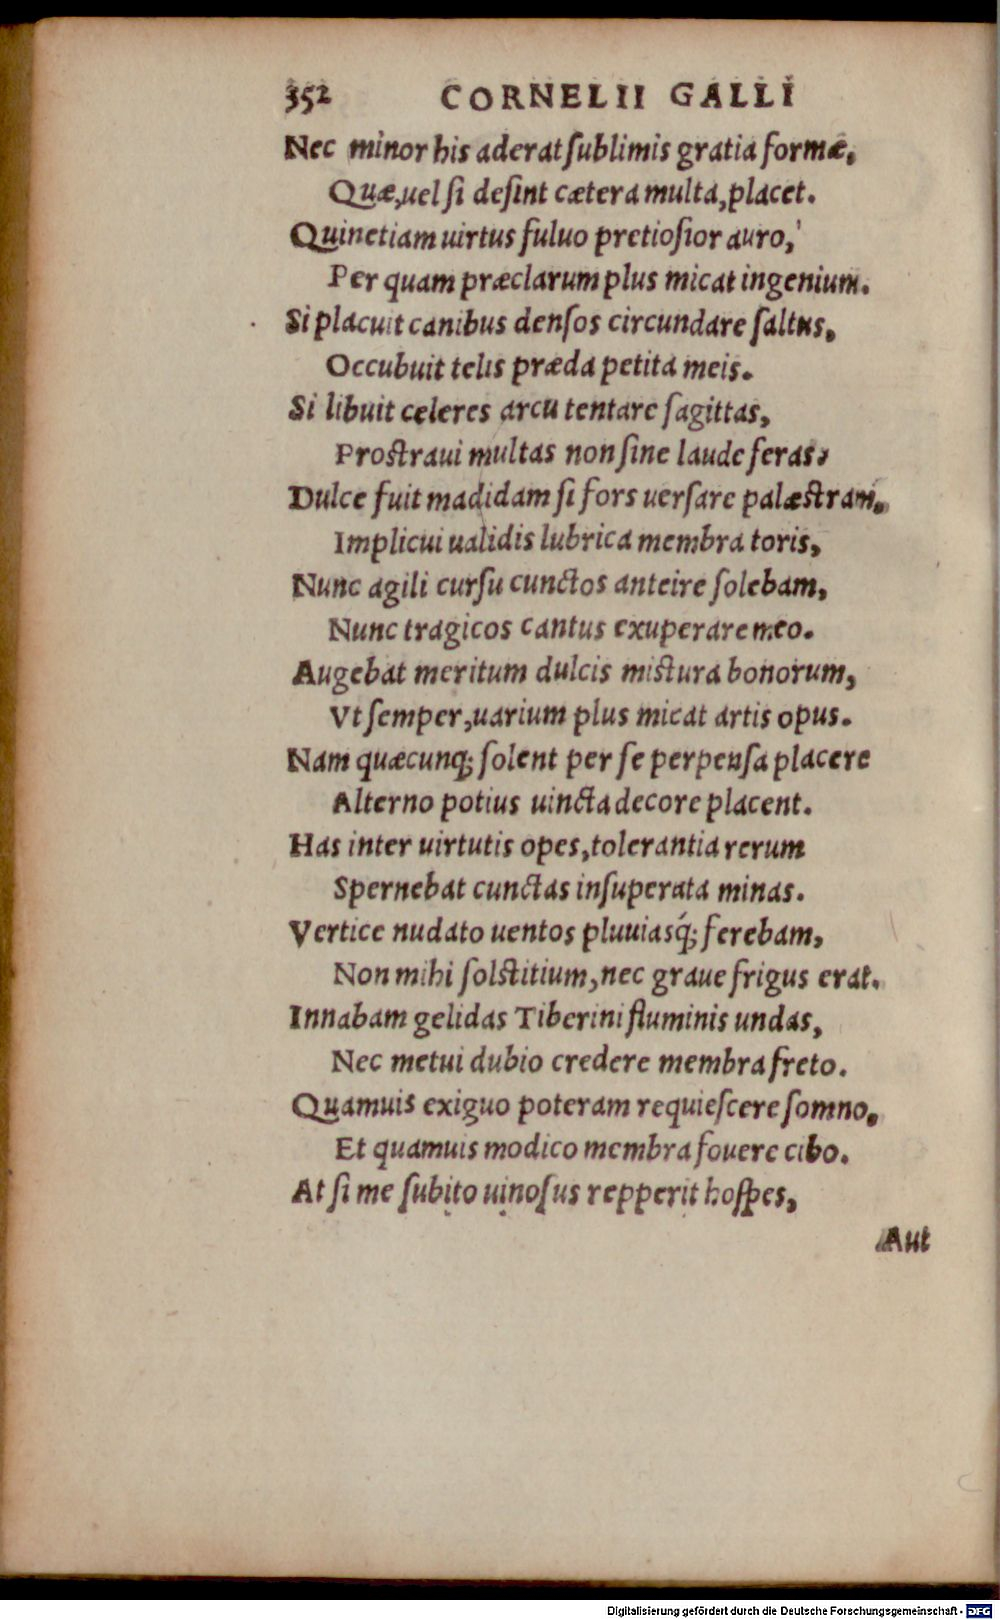 352 CORNELII GALLI
Nec minor his aderat ſublimis gratia formæ,
Quæ, uel ſi deſint cætera multa, placet.
Quinetiam uirtus fuluo pretioſior auro,
Per quam præclarum plus micat ingenium.
Si placuit canibus denſos circundare ſaltus,
Occubuit telis præda petita meis.
Si libuit celeres arcu tentare ſagittas,
Proſtraui multas non ſine laude feras,
Dulce fuit madidam ſi fors uerſare palæſtram,
Implicui ualidis lubrica membra toris,
Nunc agili curſu cunctos anteire ſolebam,
Nunc tragicos cantus exuperare meo.
Augebat meritum dulcis miſtura bonorum,
Vt ſemper, uarium plus micat artis opus.
Nam quæcunq; ſolent per ſe perpenſa placere
Alterno potius uincta decore placent.
Has inter uirtutis opes, tolerantia rerum
Spernebat cunctas inſuperata minas.
Vertice nudato uentos pluuiasq́; ferebam,
Non mihi ſolſtitium, nec graue frigus erat.
Innabam gelidas Tiberini fluminis undas,
Nec metui dubio credere membra freto.
Quamuis exiguo poteram requieſcere ſomno,
Et quamuis modico membra fouere cibo.
At ſi me ſubito uinoſus repperit hoſpes,
Aut
Digitalisierung gefördert durch die Deutsche Forschungsgemeinschaft - DFG